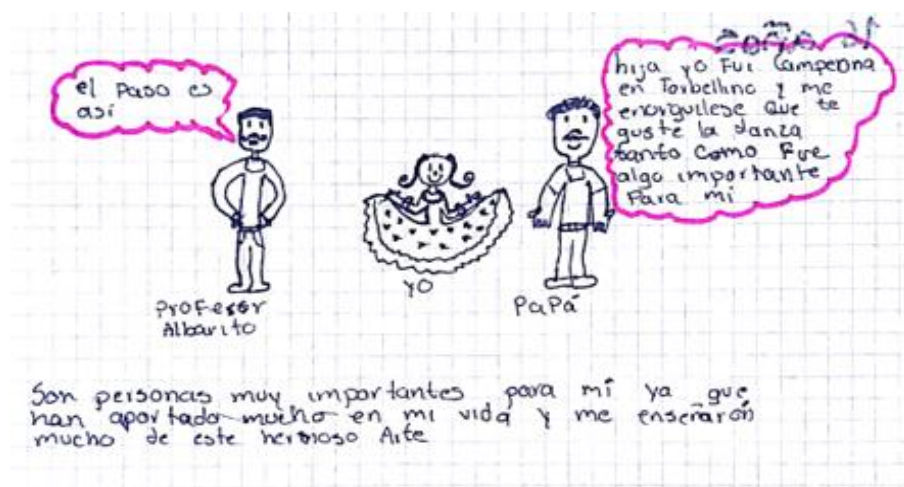 el Paso es
así
hija yo Fui Campeona
en Torbellino y me
enorgullese que te
guste la danza
tanto Como Fue
algo importante
Para mi
Profesor
Albarito
yo
PaPá
Son personas muy importantes para mí ya que
han aportado mucho en mi vida y me enseñarón
mucho de este hermoso Arte